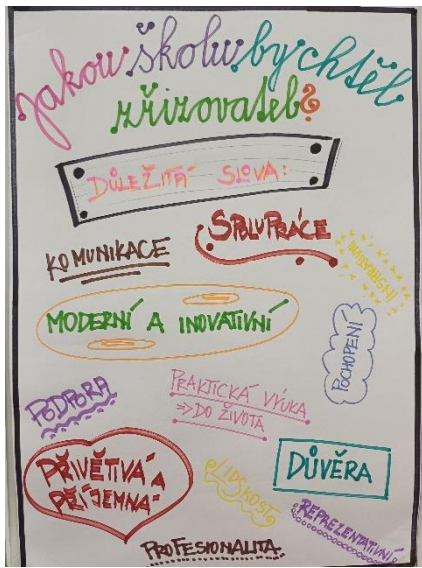 Jakou školu by chtěl
zřizovatel?
DŮLEŽITÁ SLOVA:
SPOLUPRÁCE
KOMUNIKACE
INSPIRATIVNÍ
MODERNÍ A INOVATIVNÍ
POCHOPENÍ
PODPORA
PRAKTICKÁ VÝUKA
=> DO ŽIVOTA
PŘÍVĚTIVÁ A
PŘÍJEMNÁ
LIDSKOST
DŮVĚRA
REPREZENTATIVNÍ
PROFESIONALITA.